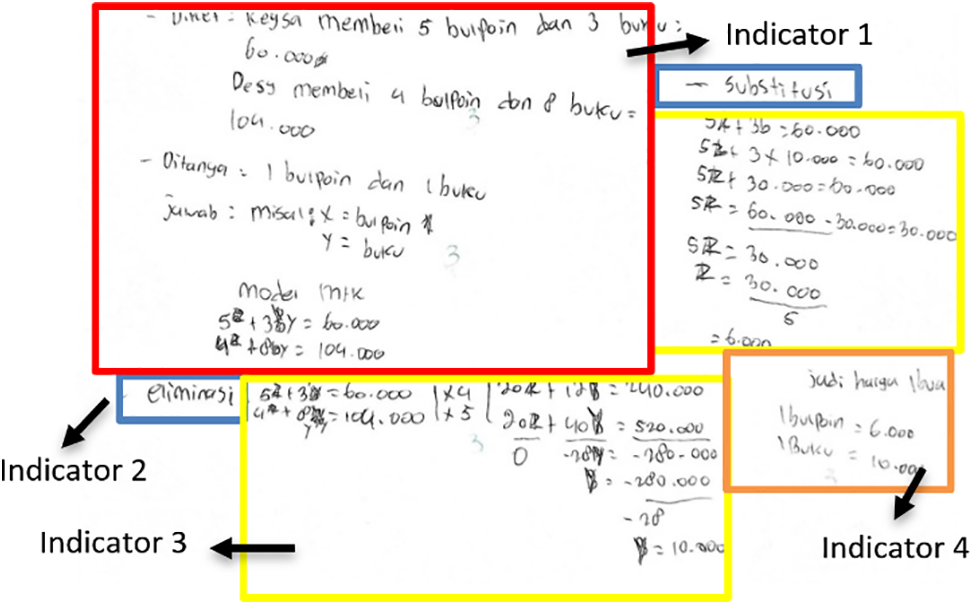 - Diket : Keysa membeli 5 bulpoin dan 3 buku :
60.000
Desy membeli 4 bulpoin dan 8 buku =
104.000
3
- Ditanya = 1 bulpoin dan 1 buku
jawab : misal : x = bulpoin
y = buku
3
model mtk
5x + 3y = 60.000
4x + 8y = 104.000
Indicator 1
- substitusi
5x + 3b = 60.000
5x + 3 x 10.000 = 60.000
5x + 30.000 = 60.000
5x = 60.000 - 30.000 = 30.000
5x = 30.000
x = 30.000
5
= 6.000
- eliminasi
5x + 3y = 60.000 | x 4 | 20x + 12y = 240.000
4x + 8y = 104.000 | x 5 | 20x + 40y = 520.000
3
0 -28y = -280.000
y = -280.000
-28
y = 10.000
jadi harga 1 bua
1 bulpoin = 6.000
1 Buku = 10.000
Indicator 2
Indicator 3
Indicator 4